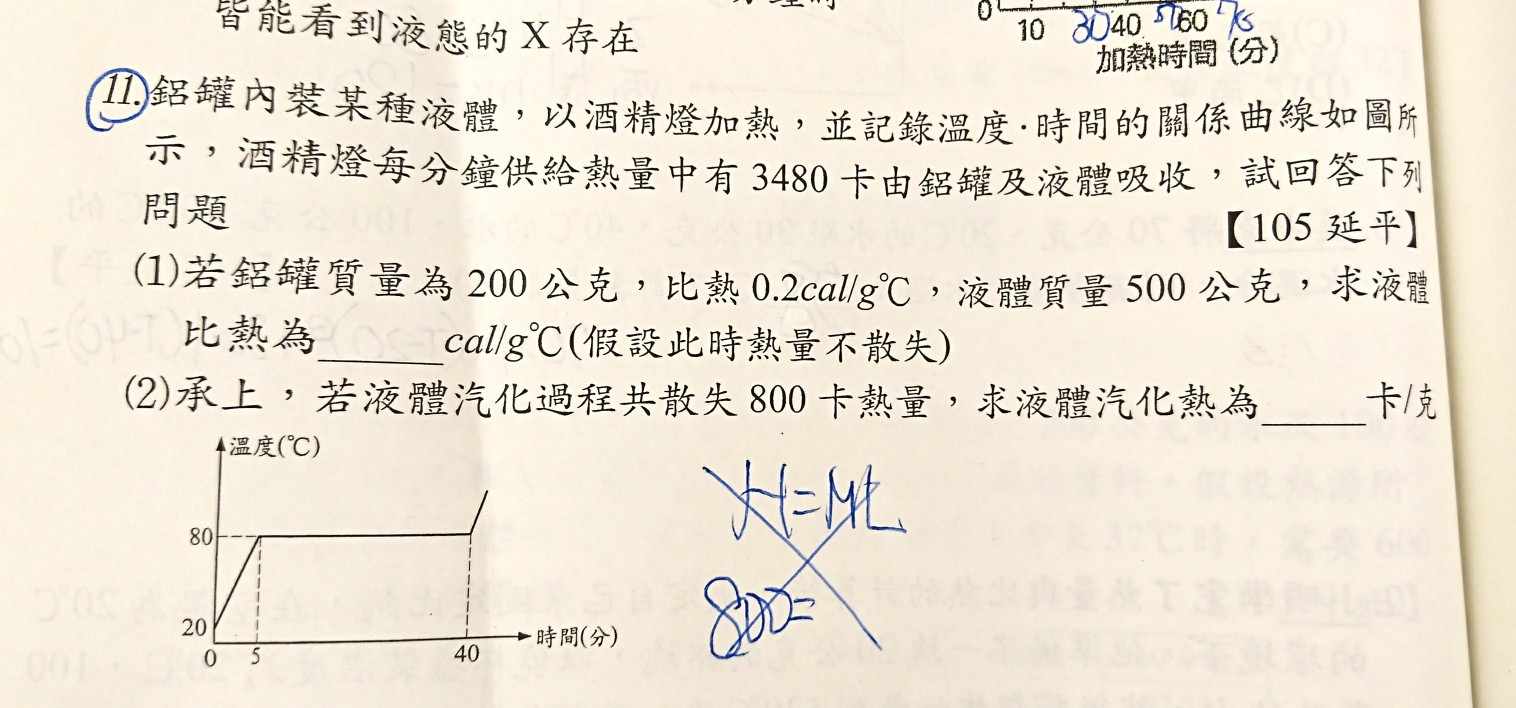 皆能看到液態的 X 存在
0
10 30 40 60 75
加熱時間 (分)
11.鋁罐內裝某種液體，以酒精燈加熱，並記錄溫度·時間的關係曲線如圖所
示，酒精燈每分鐘供給熱量中有 3480 卡由鋁罐及液體吸收，試回答下列
問題
【105 延平】
(1)若鋁罐質量為 200 公克，比熱 0.2cal/g℃，液體質量 500 公克，求液體
比熱為______cal/g℃(假設此時熱量不散失)
(2)承上，若液體汽化過程共散失 800 卡熱量，求液體汽化熱為______卡/克
溫度(℃)
80
20
0 5 40 時間(分)
H=ML
800=